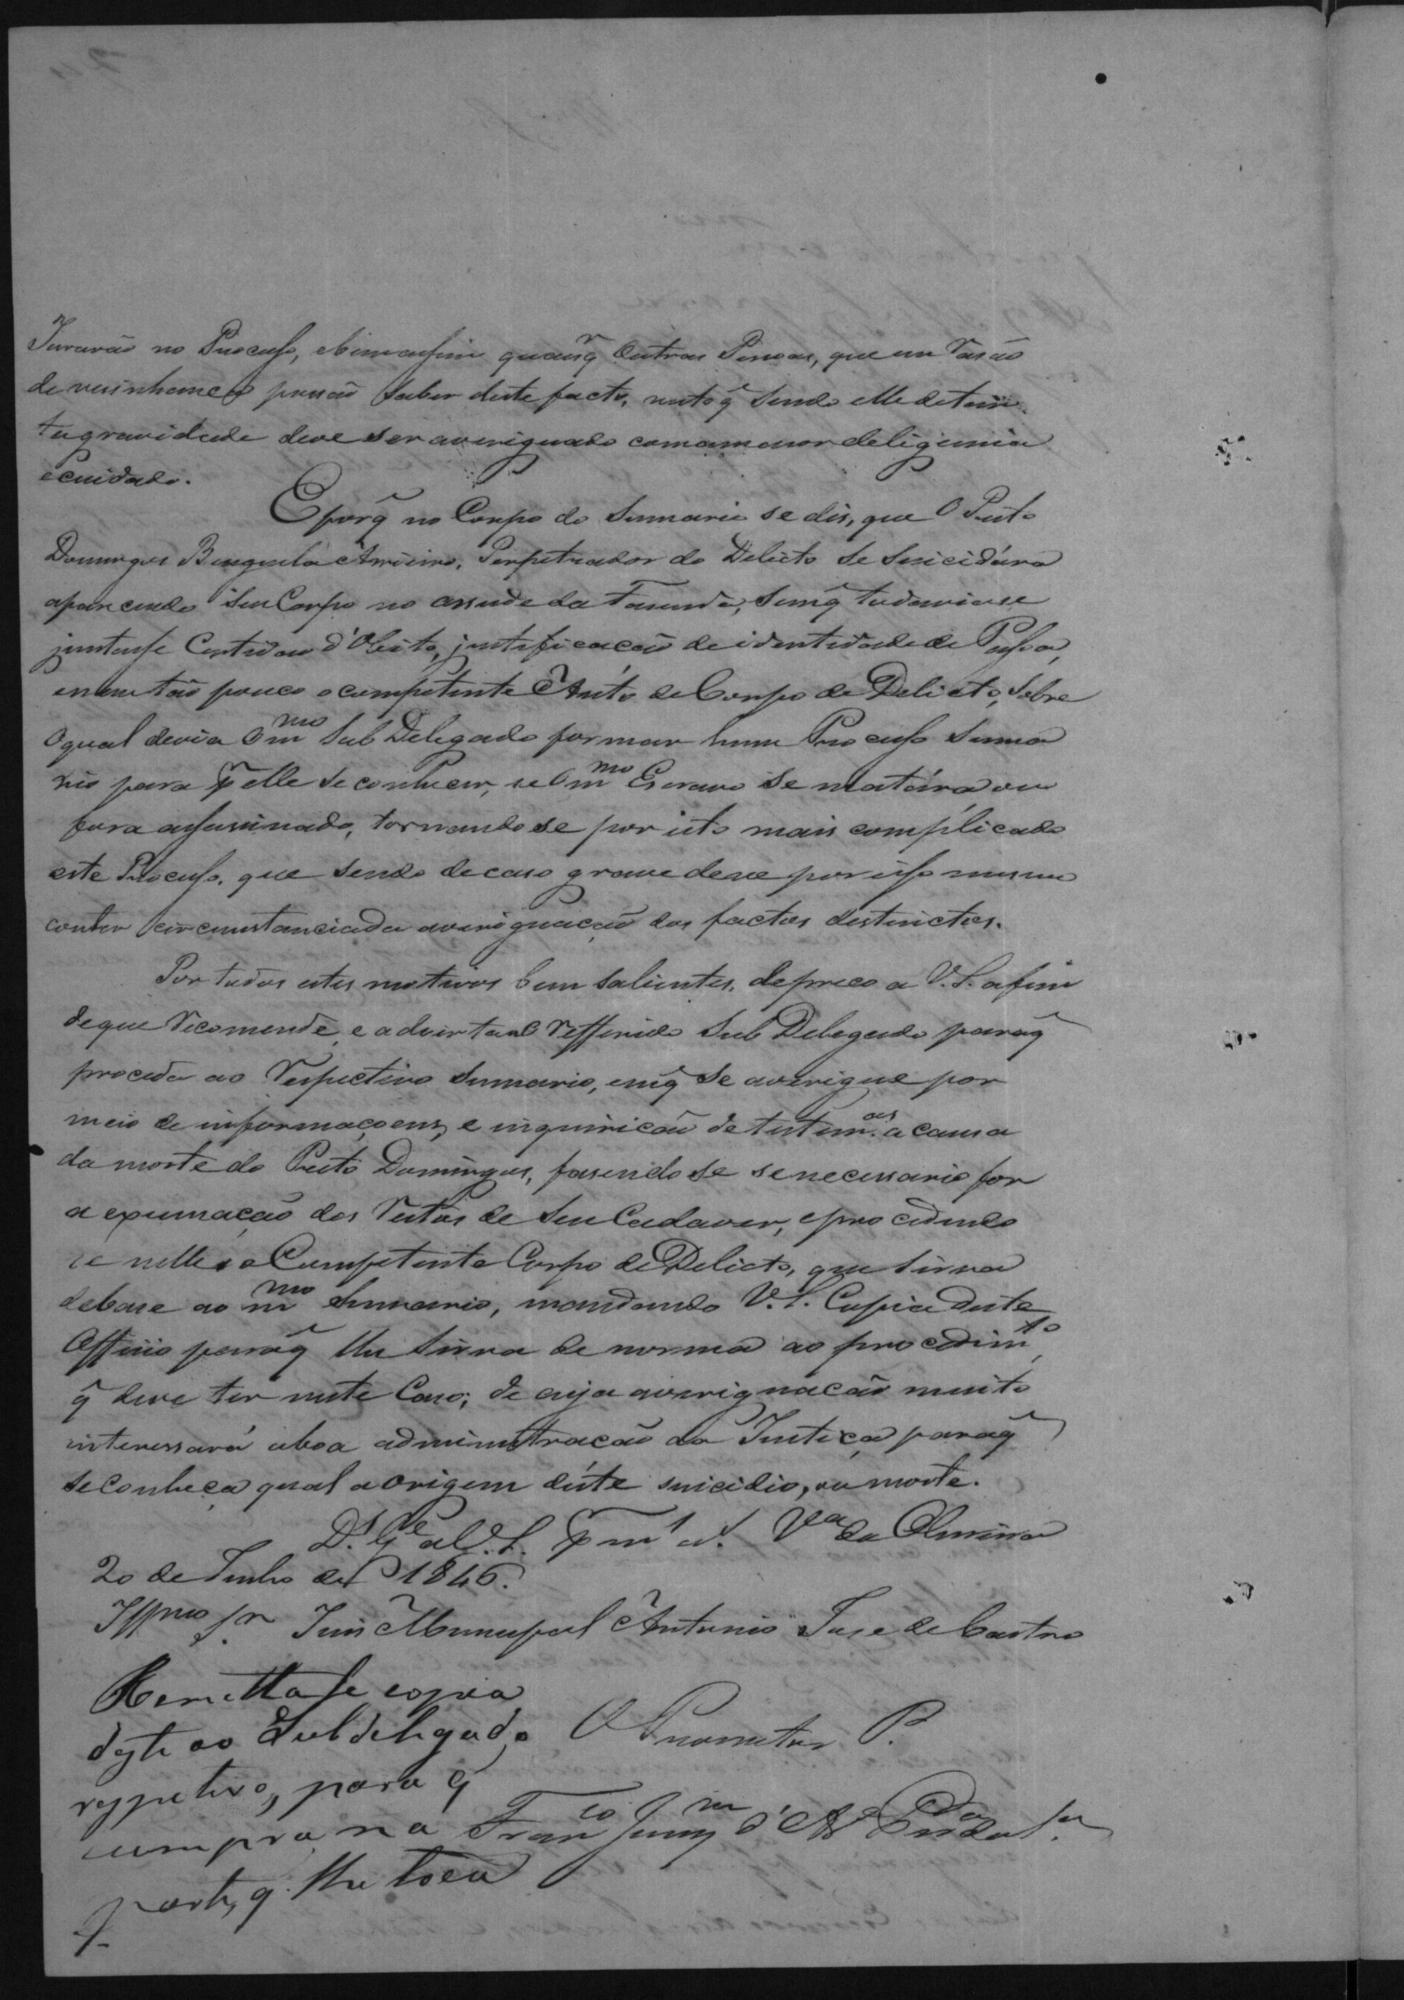 Jurarão no Processo, e bem assim quaesqr̃ Outras Pessoas, que em rasão
de vesinhança possão Saber deste facto, visto q̃ Sendo elle de tam
ta gravidade deve ser averiguado com a maior deligencia
e cuidado.
E porq̃ no Corpo do Sumario se dis, que O Preto
Domingos Benguela Arrieiro, Perpetrador do Delicto Se Suicidára
aparecendo Seu Corpo no assude da Fasenda, Semq̃ todavia se
juntasse Certidão d'Obito, justificação de identidade de Pessoa,
e nem tão pouco o competente Auto de Corpo de Delicto, Sobre
O qual devia O mmo Sub Delegado formar hum Processo Suma
rio para p elle Se conhecer, se O mmo Escravo Se matára ou
fora assassinado, tornando se por isto mais complicado
este Processo, que sendo de caso grave deve por isso mesmo
conter circumstanciada averiguação dos factos destinctos.
Por todos estes motivos bem salientes, depreco a V. S. afim
de que recomende, e advirta ao refferido Sub Delegado paraq̃
proceda ao respectivo Sumario, emq̃ Se averigue por
meio de informaçoens, e inquirição de testemas a causa
da morte do Preto Domingos, fasendo se se necessario for
a exumação dos restos de Seu Cadaver, e procedendo
se nelle o Competente Corpo de Delicto, que sirva
de base ao mmo Sumario, mandando V. S. Copia deste
Officio paraq̃ lhe Sirva de norma ao procedimto,
q̃ deve ter neste Caso; de cuja averiguação muito
interessará a boa administração da Justiça paraq̃
se conheça qual a origem déste suicidio, ou morte.
Ds. Ge a V. S. p ms as. Va da Oliveira
20 de Junho de 1846.
Illmo Sr. Juis Municipal Antonio Jose de Castro
Remetta se copia
deste ao Subdelegado O Promotor P.
respetivo, para q̃
cumpra, na Franco Joaqm d'A
parte, q. lhe toca